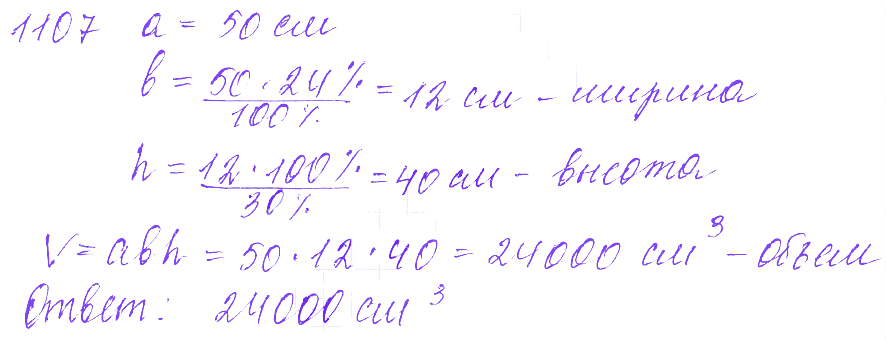 1107 a = 50 см
b = 50 · 24% / 100% = 12 см - ширина
h = 12 · 100% / 30% = 40 см - высота
V = abh = 50 · 12 · 40 = 24000 см³ - объем
Ответ: 24000 см³